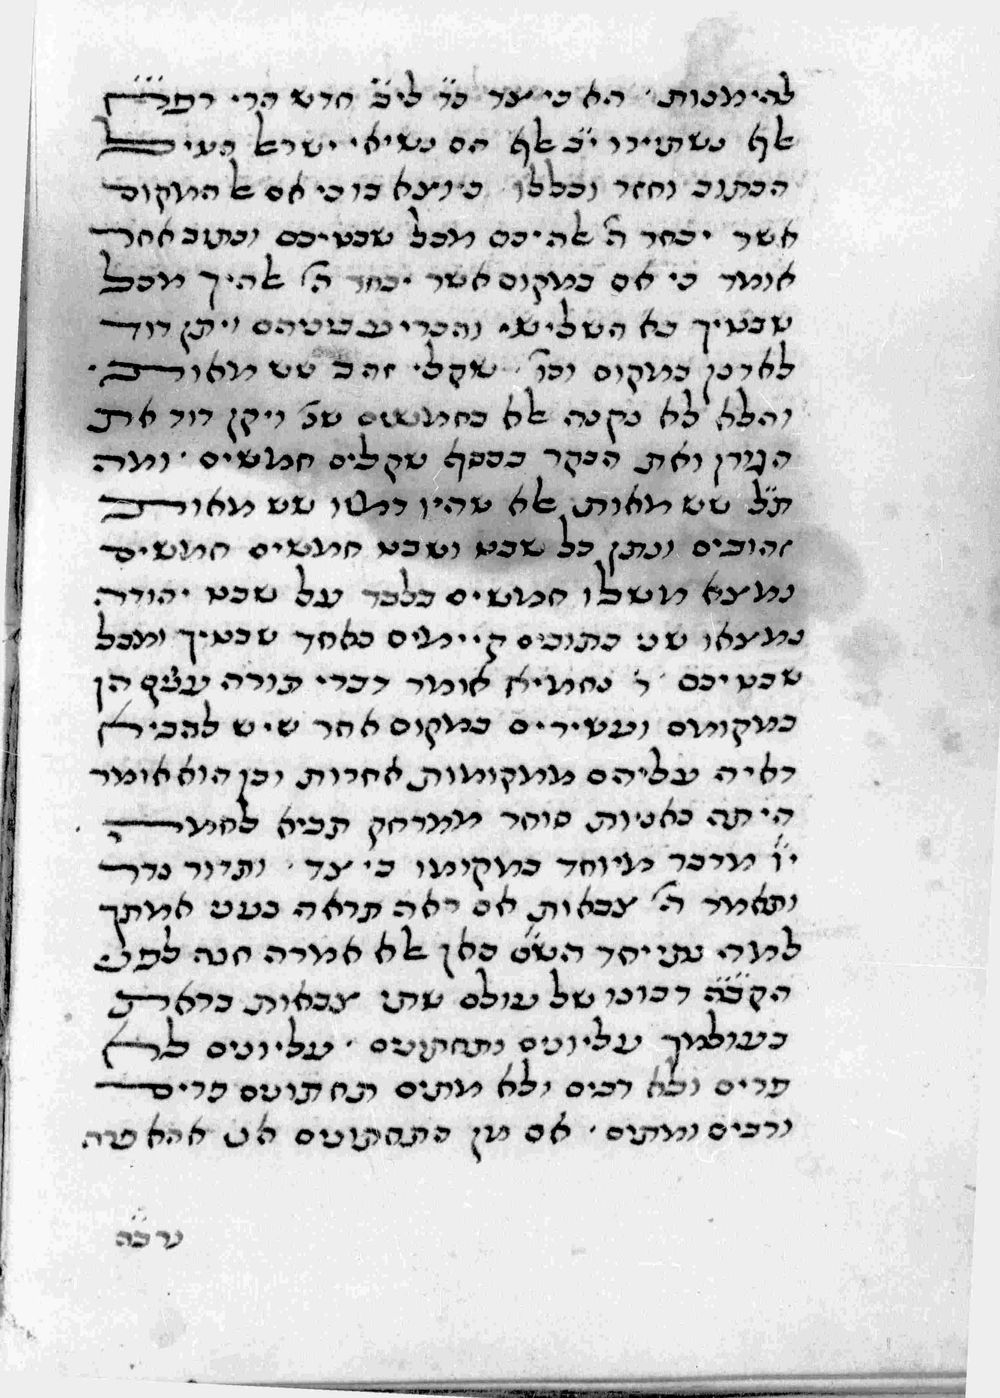 להימנות׳ הא כיצד כ״ד לי״ב חדש הרי רפ״ח
אלף נשתיירו י״ב אלף הם נשיאי ישראל העיל
הכתוב וחזר וכללן׳ כיוצא בו כי אם אל המקום
אשר יבחר ה׳ אלהיכם מכל שבטיכם וכתוב אחד
אומר כי אם במקום אשר יבחר ה׳ אלהיך מכל
שבטיך בא השלישי והכריע ביניהם ויתן דוד
לארנן במקום וכו׳ שקלי זהב שש מאות׳
והלא לא נקנה אלא בחמשים שנ׳ ויקן דוד את
הגורן ואת הבקר בכסף שקלים חמשים׳ ומה
ת״ל שש מאות אלא שהיו דמיו שש מאות
זהובים ונתן כל שבט ושבט חמשים חמשים
נמצא משלו חמשים בלבד על שבט יהודה
נמצאו שני כתובים קיימים באחד שבטיך ומכל
שבטיכם׳ ר׳ נחמיא אומר דברי תורה עצמן הן
במקומם ועשירים במקום אחר שיש להביא
ראיה עליהם ממקומות אחרות וכן הוא אומר
היתה כאניות סוחר ממרחק תביא לחמה
י״ו מדבר מיוחד במקומו כיצד׳ ותדור נדר
ותאמר ה׳ צבאות אם ראה תראה בעני אמתך
למה נתייחד השם כאן אלא אמרה חנה לפני
הקב״ה רבונו של עולם שתי צבאות בראת
בעולמך עליונים ותחתונים׳ עליונים לא
פרים ולא רבים ולא מתים תחתונים פרים
ורבים ומתים׳ אם מן התחתונים אני אהא פרה